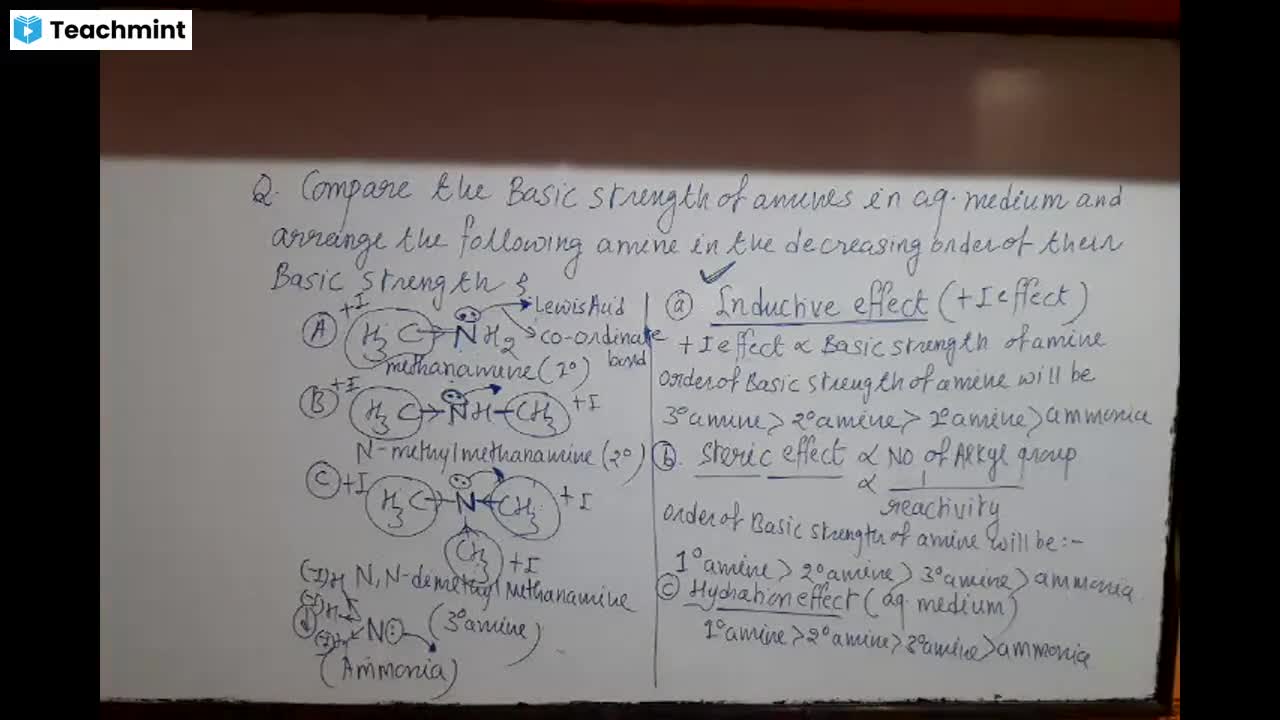 Teachmint
Q. Compare the Basic strength of amines in aq. medium and
arrange the following amine in the decreasing order of their
Basic strength
(A) +I H3C → N̈H2 → Lewis Acid
→ co-ordinate bond
methanamine (1°)
(B) +I H3C → N̈H - CH3 +I
N-methylmethanamine (2°)
(C) +I H3C → N ← CH3 +I
CH3 +I
N,N-dimethylmethanamine
(3° amine)
(-I) H
(-I) H
(-I) H N:
(Ammonia)
(a) Inductive effect (+I effect)
+I effect ∝ Basic strength of amine
order of Basic strength of amine will be
3° amine > 2° amine > 1° amine > ammonia
(b). Steric effect ∝ No of Alkyl group
∝ 1/reactivity
order of Basic strength of amine will be :-
1° amine > 2° amine > 3° amine > ammonia
(c) Hydration effect (aq. medium)
1° amine > 2° amine > 3° amine > ammonia